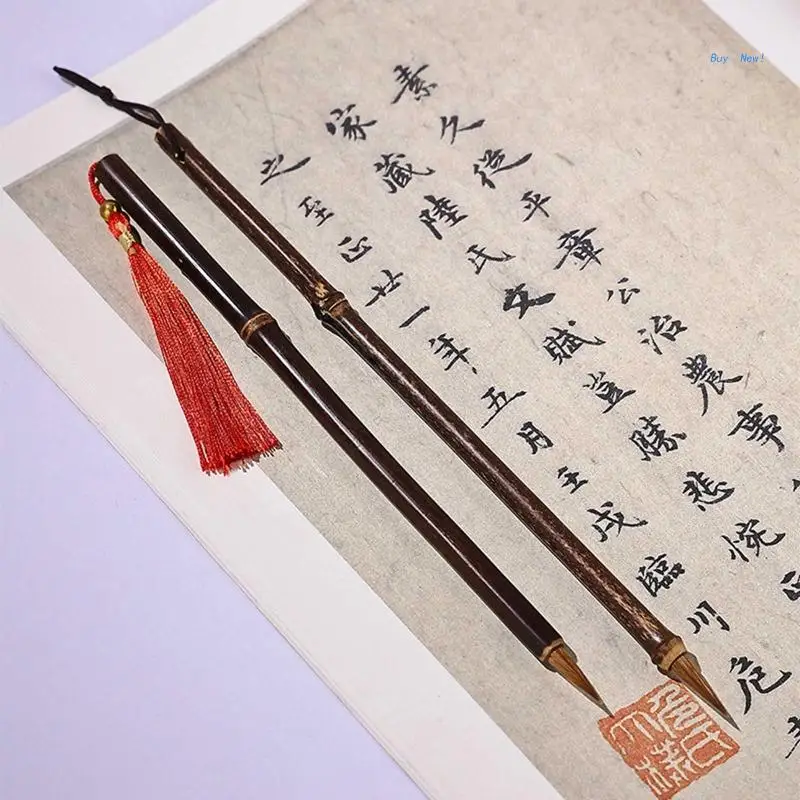 Buy New!
素久從平章公治農事
家藏陸氏文賦豈勝悲悅
之至正廿一年五月壬戌臨川危
危氏
太樸